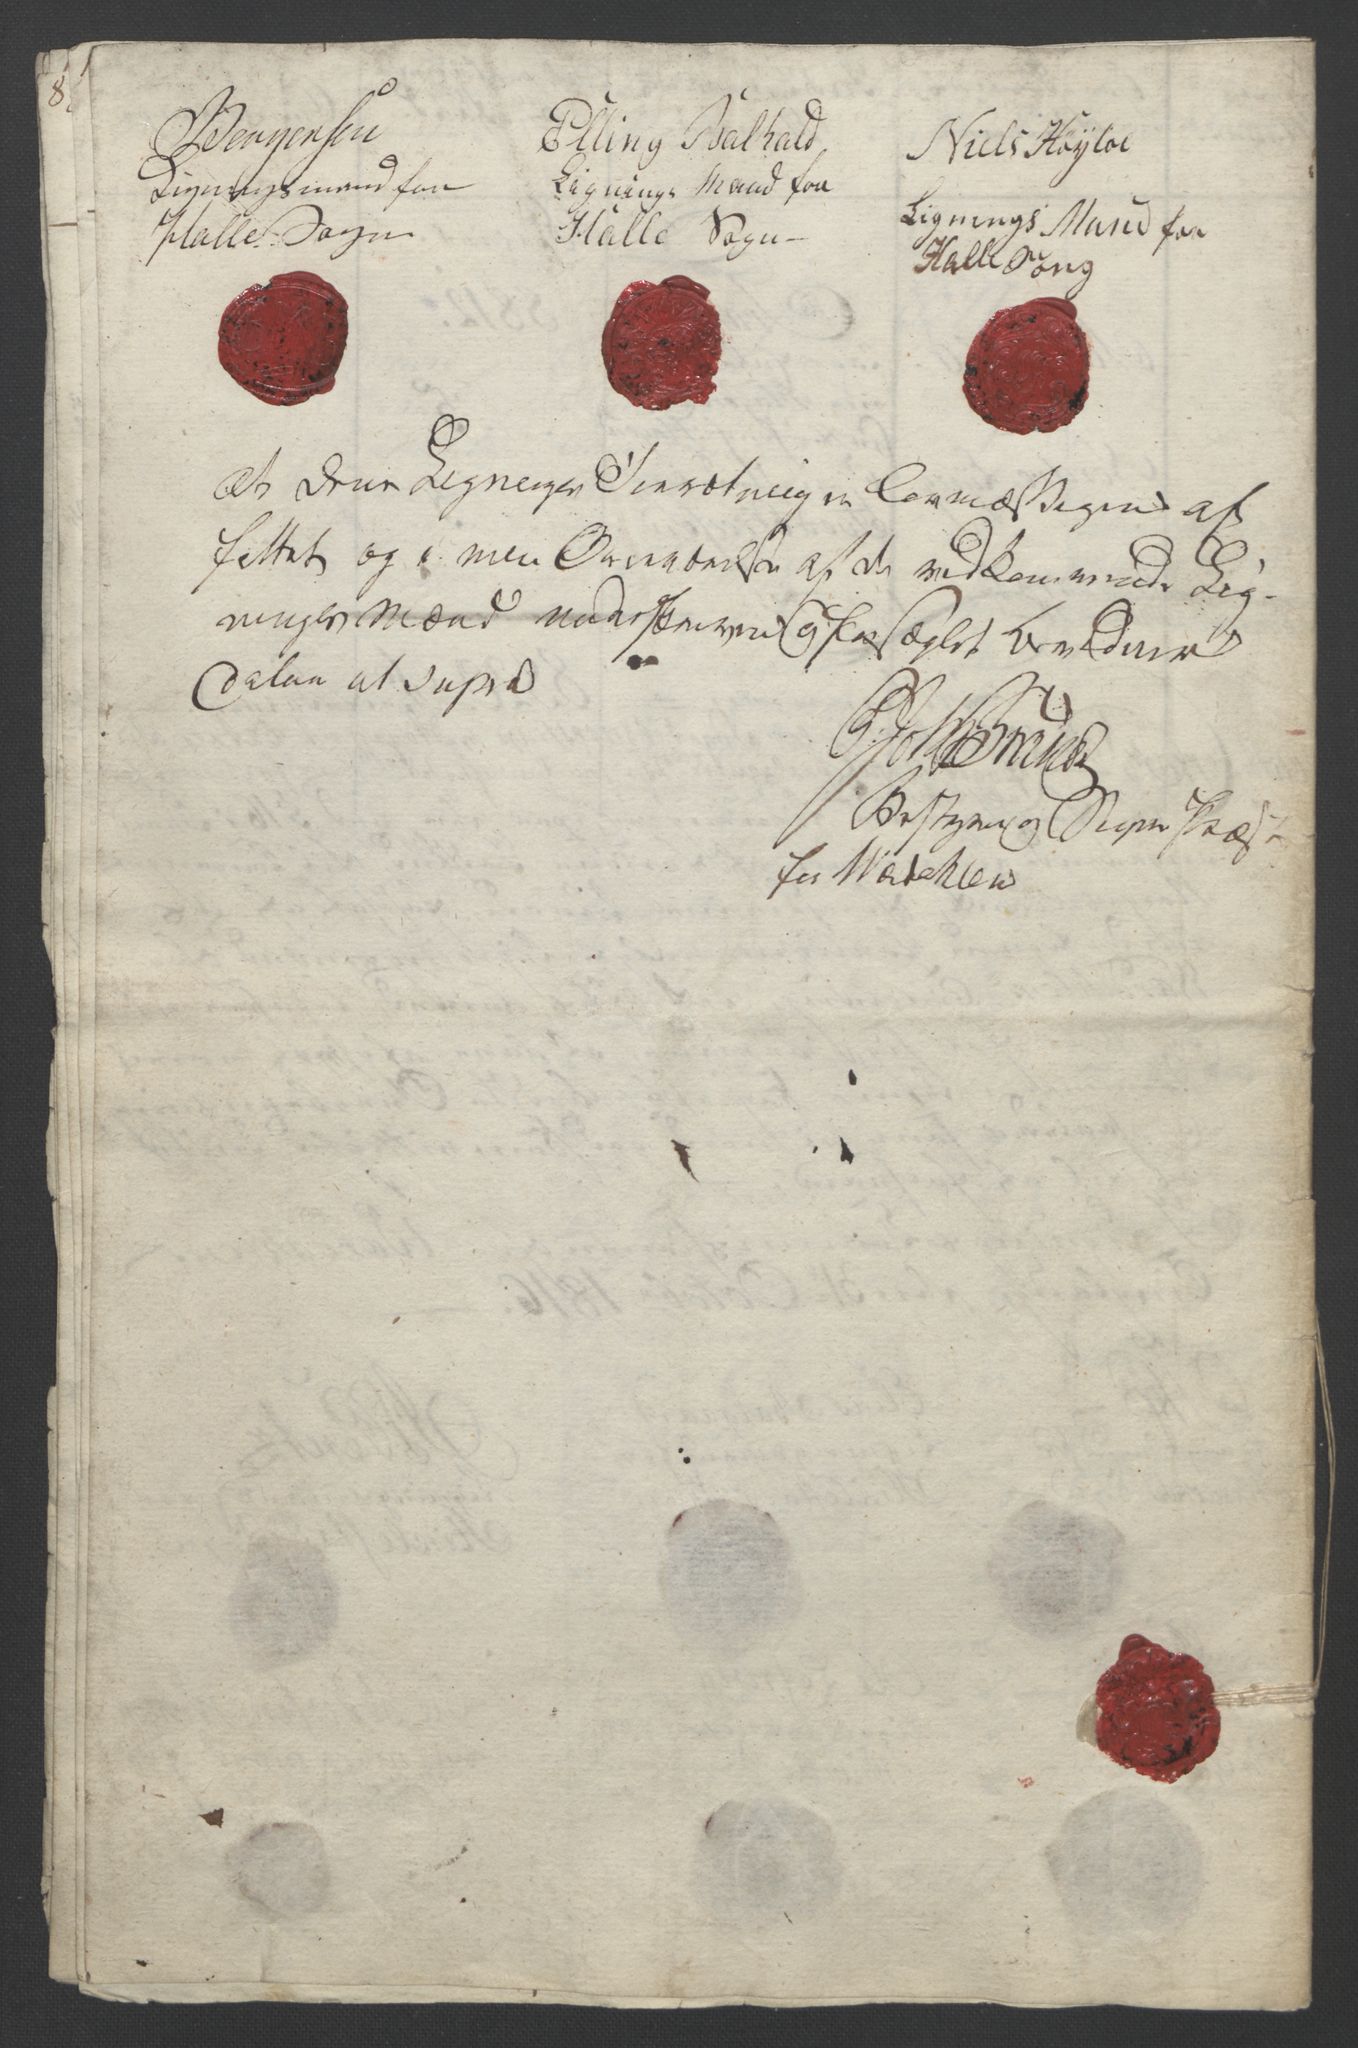 8
Bengensen
Ligningsmand for
Halle Sogn
Elling Valhald
Lignings Mand for
Halle Sogn
Niels Höyloe
Lignings Mand for
Halle Song
At denne Lignings Forretning er lovmæssigen af
fattet og i min Overværelse af de vedkommende Lig-
nings Mænd underskreven og forseglet bevidner
Datum ut supra
Bestyrer og Sogne Præst
for Wardahlen